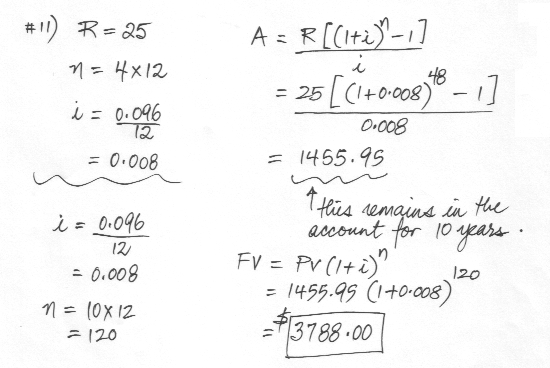 #11) R = 25
n = 4×12
i = 0.096
12
= 0.008
i = 0.096
12
= 0.008
n = 10×12
= 120
A = R[(1+i)^n - 1]
i
= 25[(1+0.008)^48 - 1]
0.008
= 1455.95
↑ this remains in the
account for 10 years.
FV = PV(1+i)^n
= 1455.95 (1+0.008)^120
= $3788.00